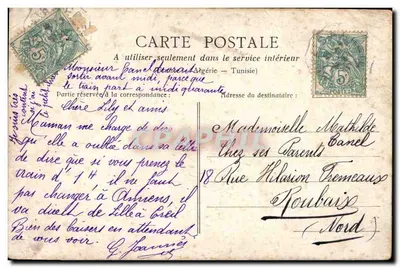 CARTE POSTALE
A utiliser seulement dans le service intérieur
(Algérie - Tunisie)
Partie réservée à la correspondance
Adresse du destinataire
Monsieur Canel devront
sortir avant midi, parce que
le train part à midi quarante
Je suis très
content
si j'ai
le petit
Chère Lily et amis
Maman me charge de dire
qu'elle a oublié dans sa lettre
de dire que si vous prenez le
train d'14 il ne faut
pas changer à Amiens, il
va direct de Lille à Creil
Bien des baisers en attendant
de vous voir.
G. Joannès
5c
Mademoiselle Mathilde
Canel
Chez ses Parents
18 Rue Hilarion Fremeaux
Roubaix
(Nord)